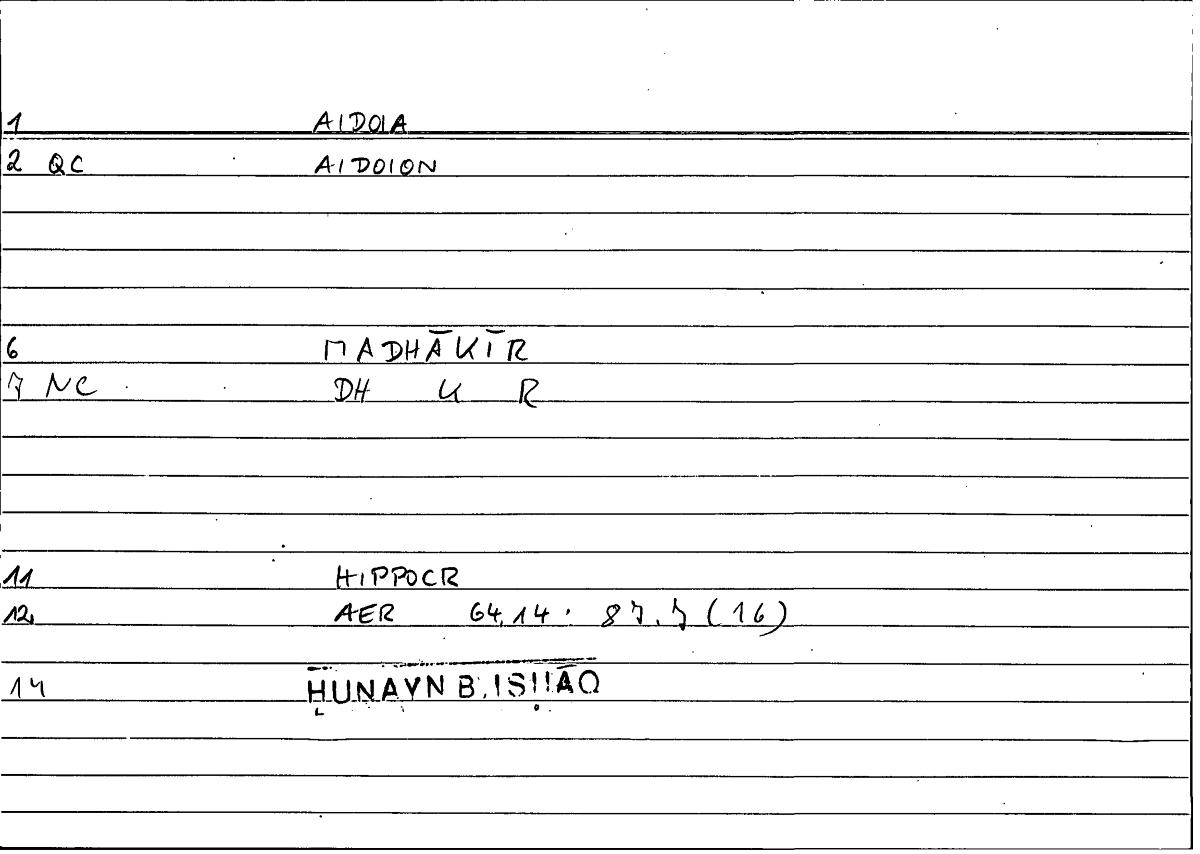 1 AIDOIA
2 QC AIDOION
6 MADHĀKĪR
7 NC DH K R
11 HIPPOCR
12. AER 64,14 : 87.7 (16)
14 ḤUNAYN B. ISḤĀQ